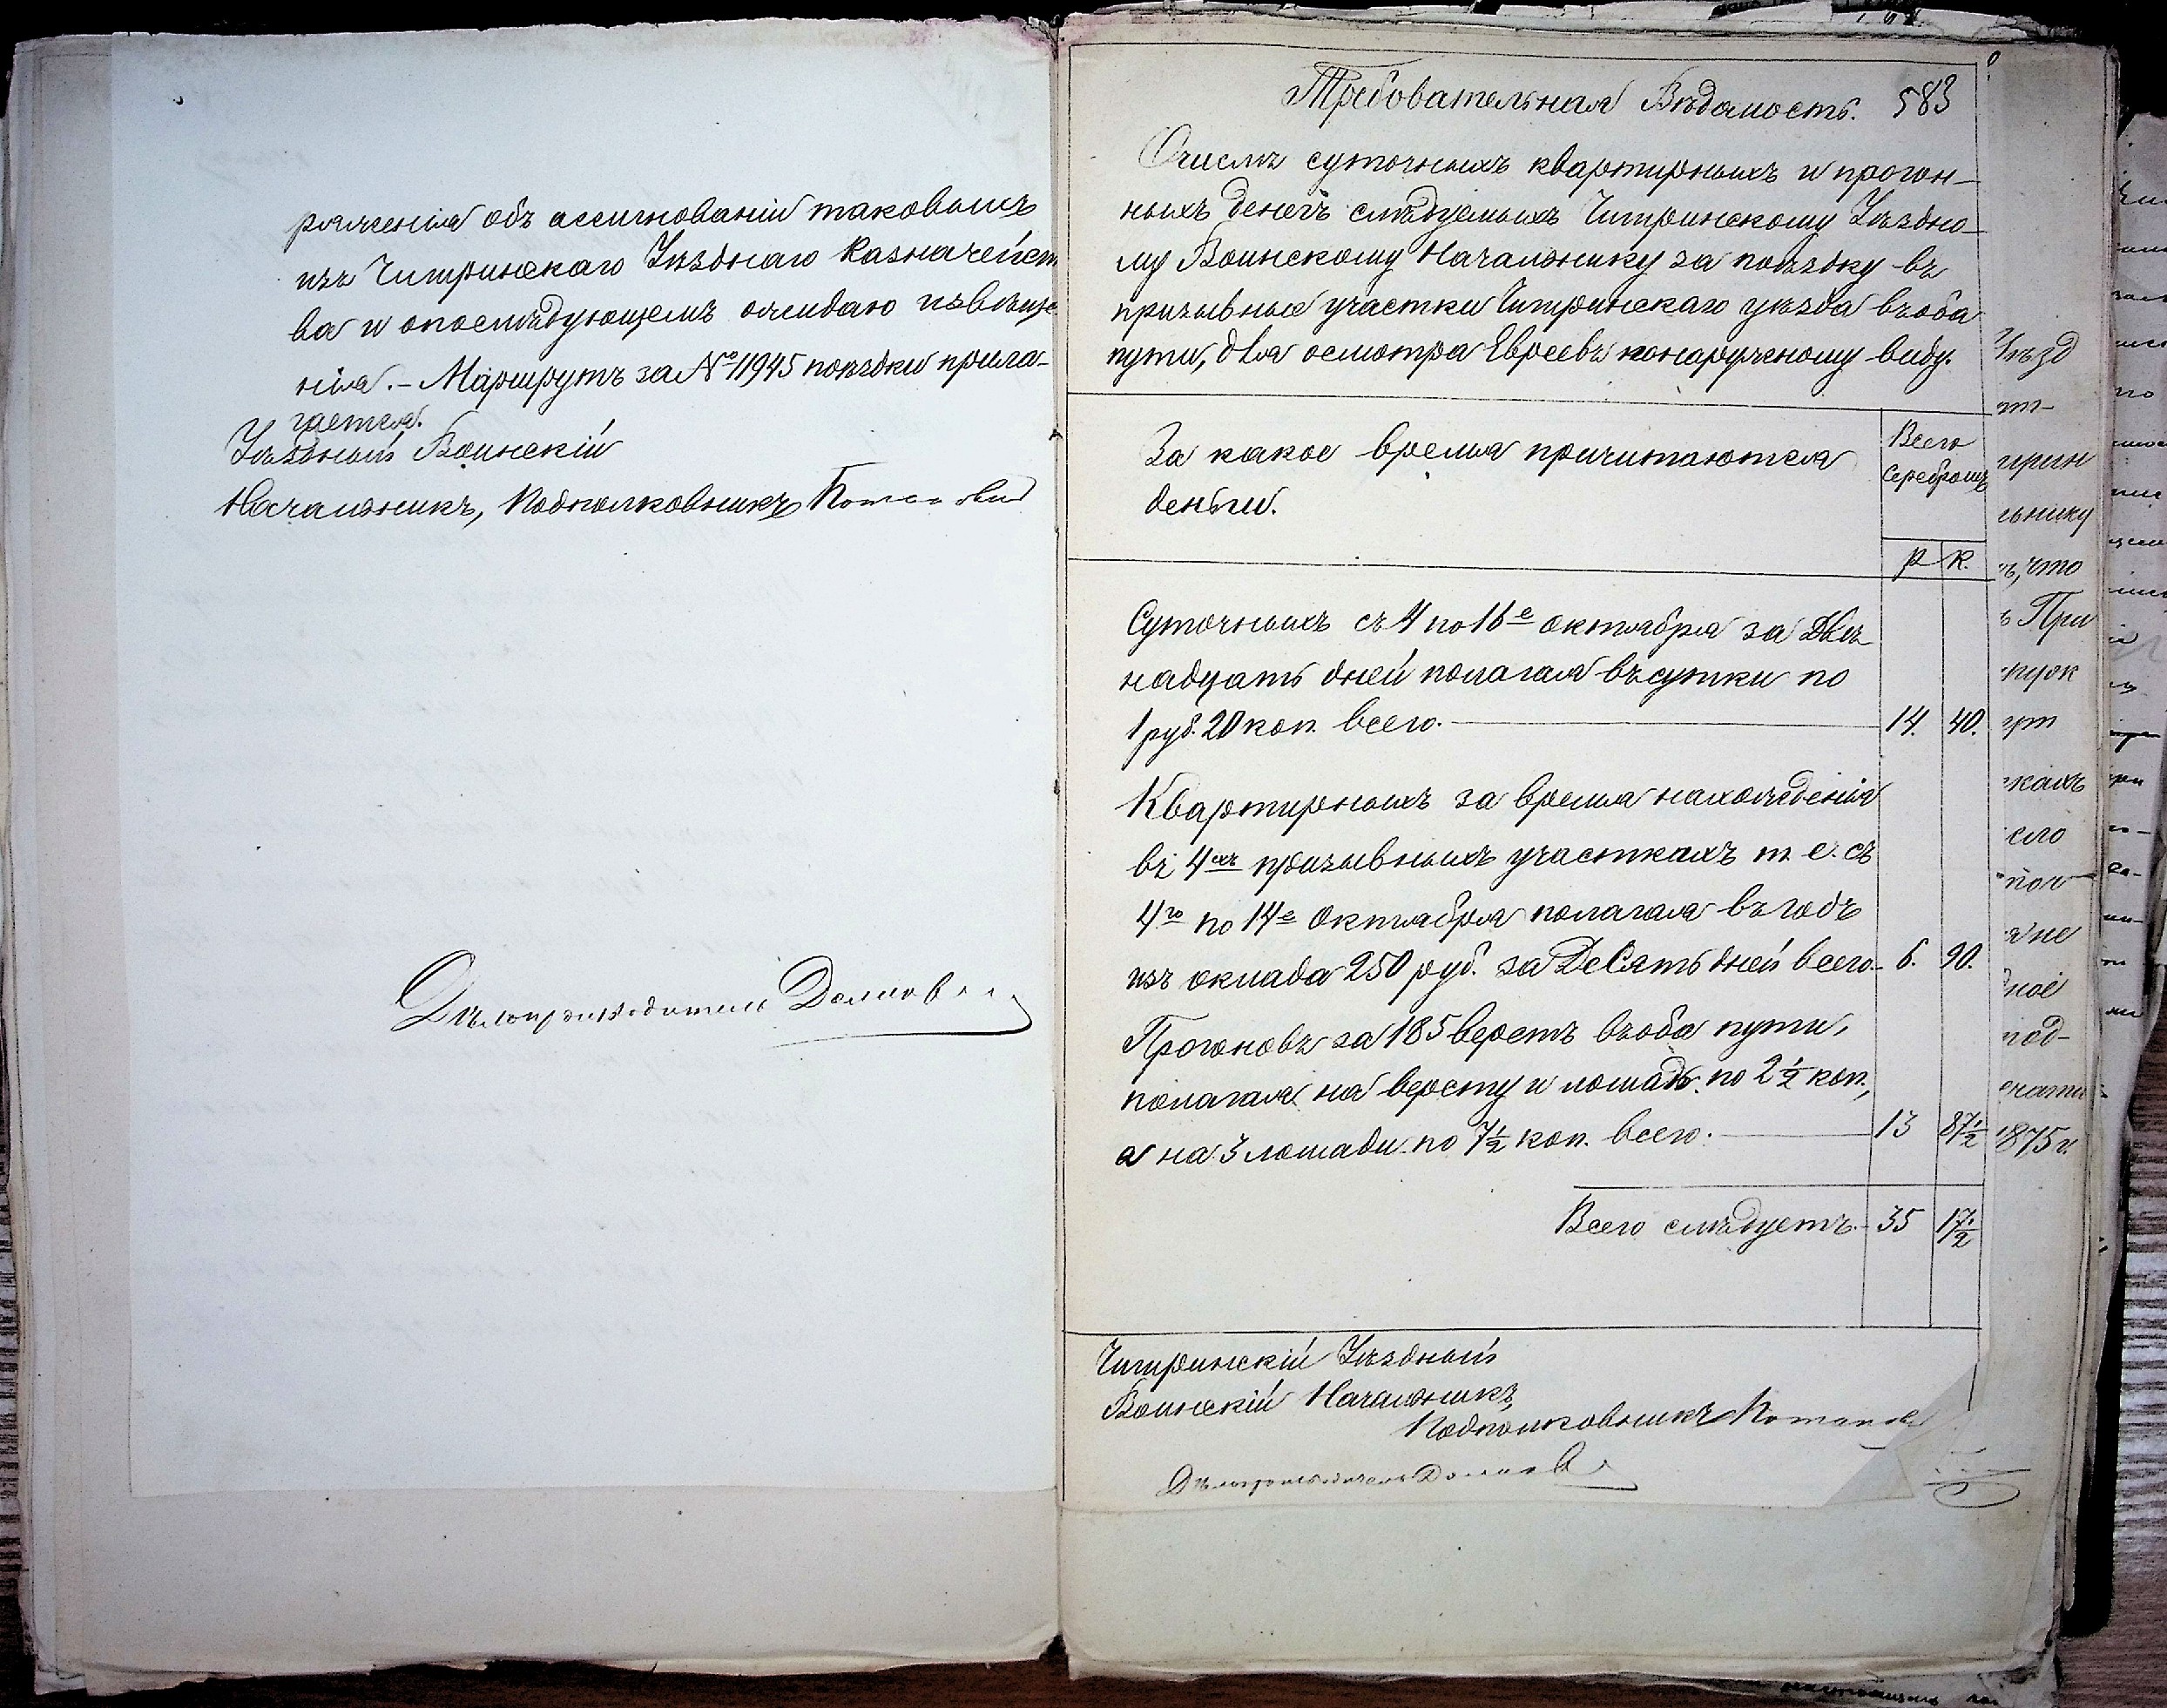 ряженія объ ассигнованіи таковыхъ
изъ Чигринскаго Уѣзднаго Казначейст
ва и опослѣдующемъ ожидаю извѣще
нія. - Маршрутъ за № 11945 поѣздки прила-
гается.
Уѣздный Воинскій
Начальникъ, Подполковникъ
Дѣлопроизводитель
Требовательная Вѣдомость. 583
Очислѣ суточныхъ квартирныхъ и прогон-
ныхъ денегъ слѣдуемыхъ Чигринскому Уѣздно-
му Воинскому Начальнику за поѣздку въ
призывные участки Чигринскаго уѣзда въ оба
пути, для осмотра Евреевъ по наружному виду.
За какое время причитаются
деньги.
Всего
Серебромъ
Р К.
Суточныхъ съ 4 по 16е октября за Двѣ-
надцать дней полагая въ сутки по
1 руб. 20 коп. всего. 14. 40.
Квартирныхъ за время нахожденія
въ 4хъ призывныхъ участкахъ т. е. съ
4го по 14е Октября полагая въ годъ
изъ оклада 250 руб. за Десять дней всего. 6. 90.
Прогоновъ за 185 верстъ въ оба пути,
полагая на версту и лошадь по 2 1/2 коп.,
а на 3 лошади по 7 1/2 коп. всего. 13 87 1/2
Всего слѣдуетъ. 35 17 1/2
Чигринскій Уѣздный
Воинскій Начальникъ,
Подполковникъ
Дѣлопроизводитель
Уѣзд
льнику
ъ, что
ъ При
кахъ
его
не
ное
под-
1875 г.